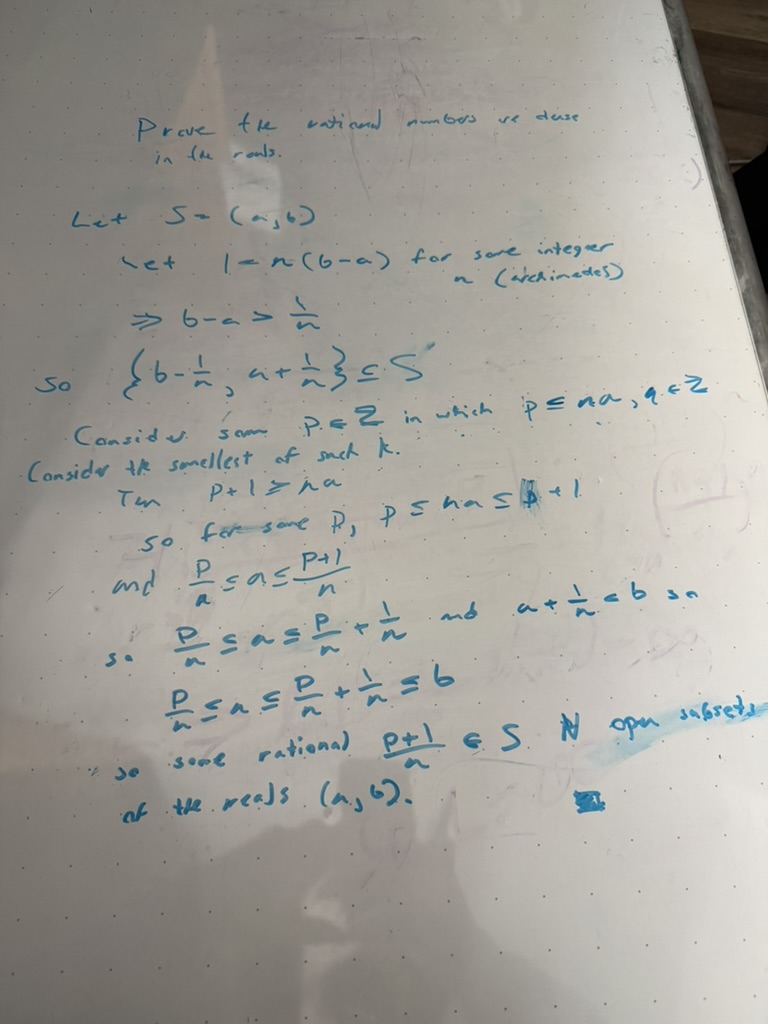 Prove the rational numbers are dense
in the reals.
Let S = (a, b)
Let 1 < n(b-a) for some integer
n (archimedes)
⇒ b-a > 1/n
So {b - 1/n, a + 1/n} ⊆ S
Consider some p ∈ ℤ in which p ≤ na, q ∈ ℤ
Consider the smallest of such k.
Then p+1 ≥ na
so for some p, p ≤ na ≤ p + 1
and p/n ≤ a ≤ (p+1)/n
so p/n ≤ a ≤ p/n + 1/n and a + 1/n < b so
p/n ≤ a ≤ p/n + 1/n ≤ b
so some rational (p+1)/n ∈ S ∀ open subsets
of the reals (a, b).